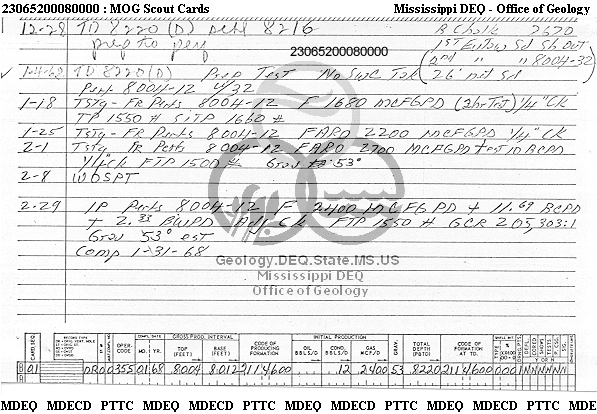 23065200080000 : MOG Scout Cards Mississippi DEQ - Office of Geology
12-28 TD 8220 (D) 8216 R Chalk 2620
prep to perf 23065200080000 1st Eutaw Sd Sh Out
(2nd " " 8004-32)
1-4-68 TD 8220 (D) Prep Test No SWC Tak (26' net Sd
Perf 8004-12 4/32
1-18 Tstg - FR Perfs 8004-12 F 1680 MCFGPD (2hr Test) 1/4" CK
TP 1550 # SITP 1660 #
1-25 Tstg - FR Perfs 8004-12 FARO 2200 MCFGPD 1/4" CK
2-1 Tstg FR Perfs 8004-12 FARO 2700 MCFGPD + est 10 BCPD
1/4" CK FTP 1500 # Grav 53°
2-8 WOSPT
2-29 IP Perfs 8004-12 F 2400 MCFGPD + 11.69 BCPD
+ 2.33 BWPD CK FTP 1550 # GCR 205,303:1
Grav 53° est
Comp 1-31-68
Geology.DEQ.State.MS.US
Mississippi DEQ
Office of Geology
CARD SEQ. RECORD TYPE OPER-CODE COMPL. DATE MO. YR. GROSS PROD. INTERVAL TOP (FEET) BASE (FEET) CODE OF PRODUCING FORMATION INITIAL PRODUCTION OIL BBLS/D COND. BBLS/D GAS MCF/D GRAV. TOTAL DEPTH (PBTD) CODE OF FORMATION AT TD.
B 01 OR 00 355 01 68 8004 8012 2114600 12 2400 53 8220 2114600 000 1 N N N N N N
MDEQ MDECD PTTC MDEQ MDECD PTTC MDEQ MDECD PTTC MDEQ